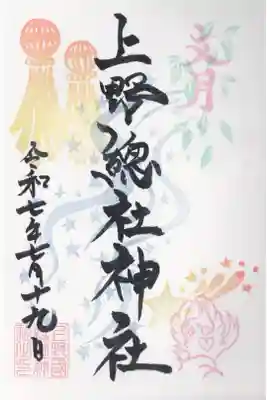 文月
上野總社神社
令和七年七月十九日